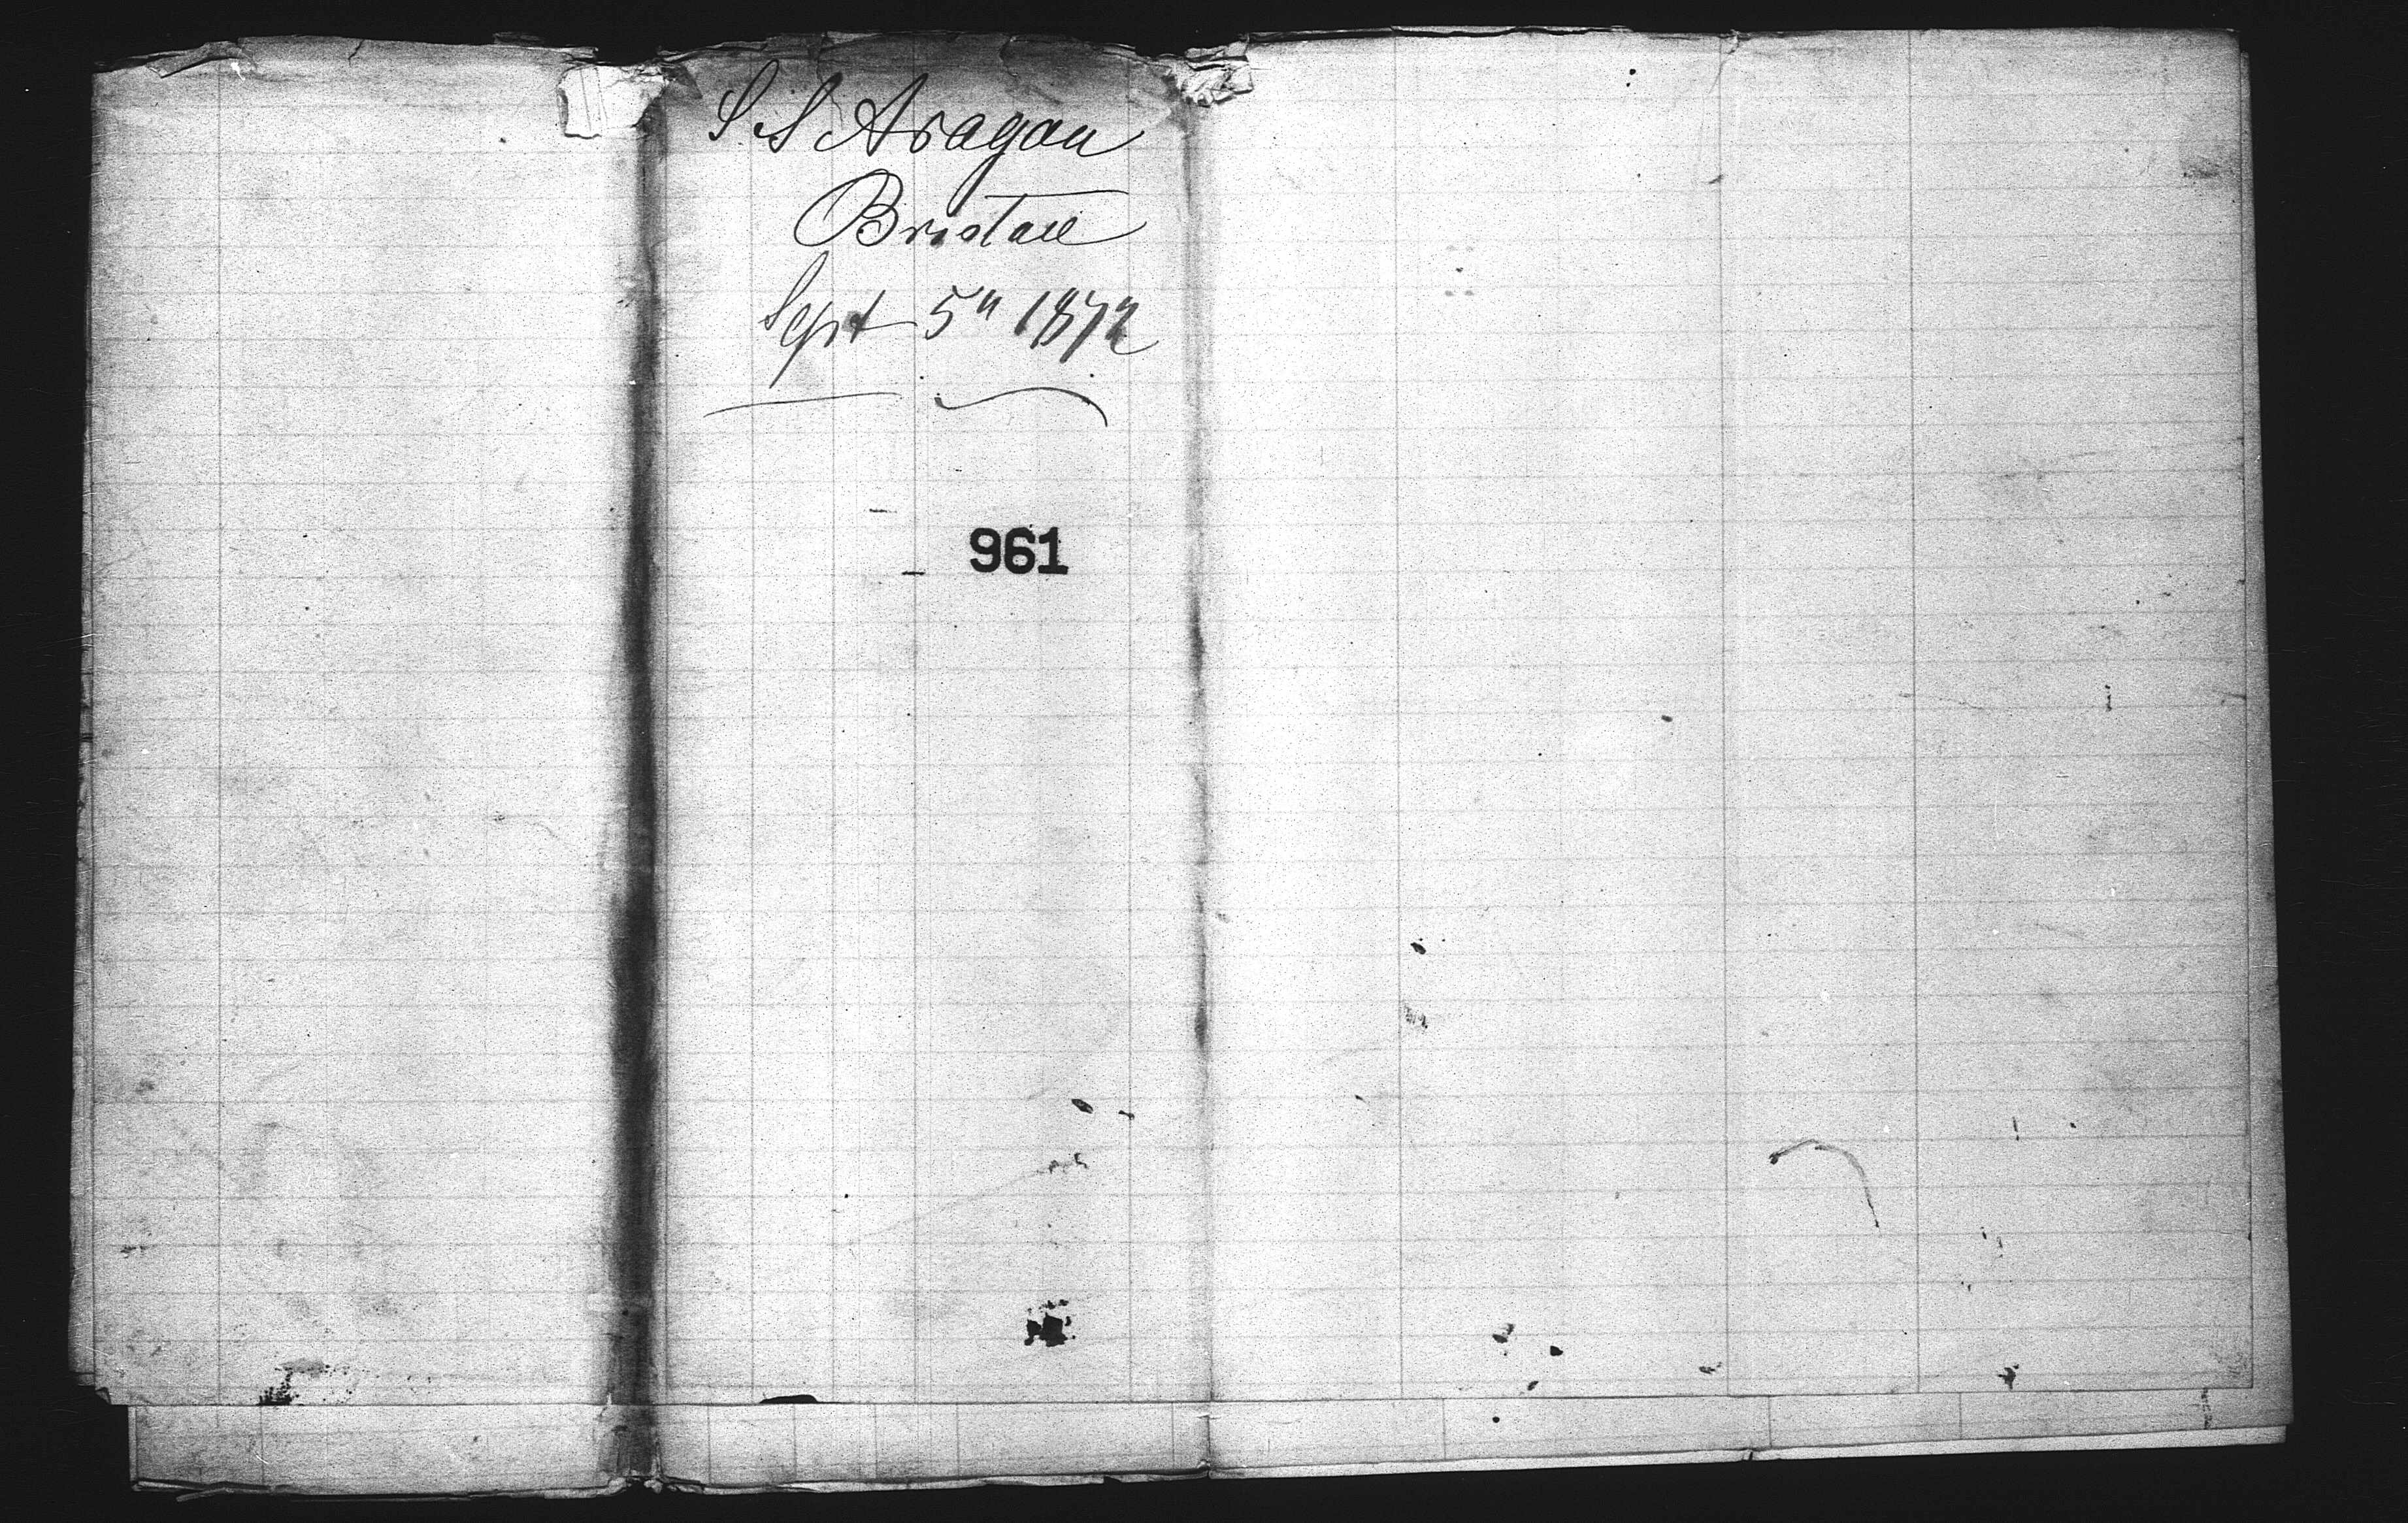 S S Aragon
Bristol
Sept 5" 1872
961